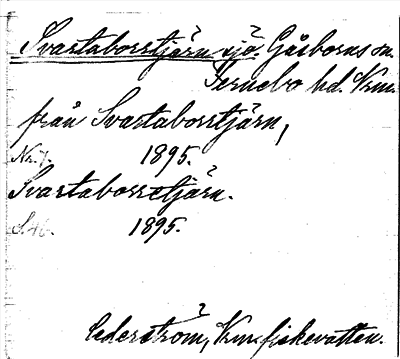 Svartaborrtjärn sjö. Gåsborns sn.
Fernebo hd. Vrm.
från Svartaborrtjärn,
Nr. 7. 1895.
Svartaborretjärn.
S. 46. 1895.
Cederström, Vrm. fiskevatten.